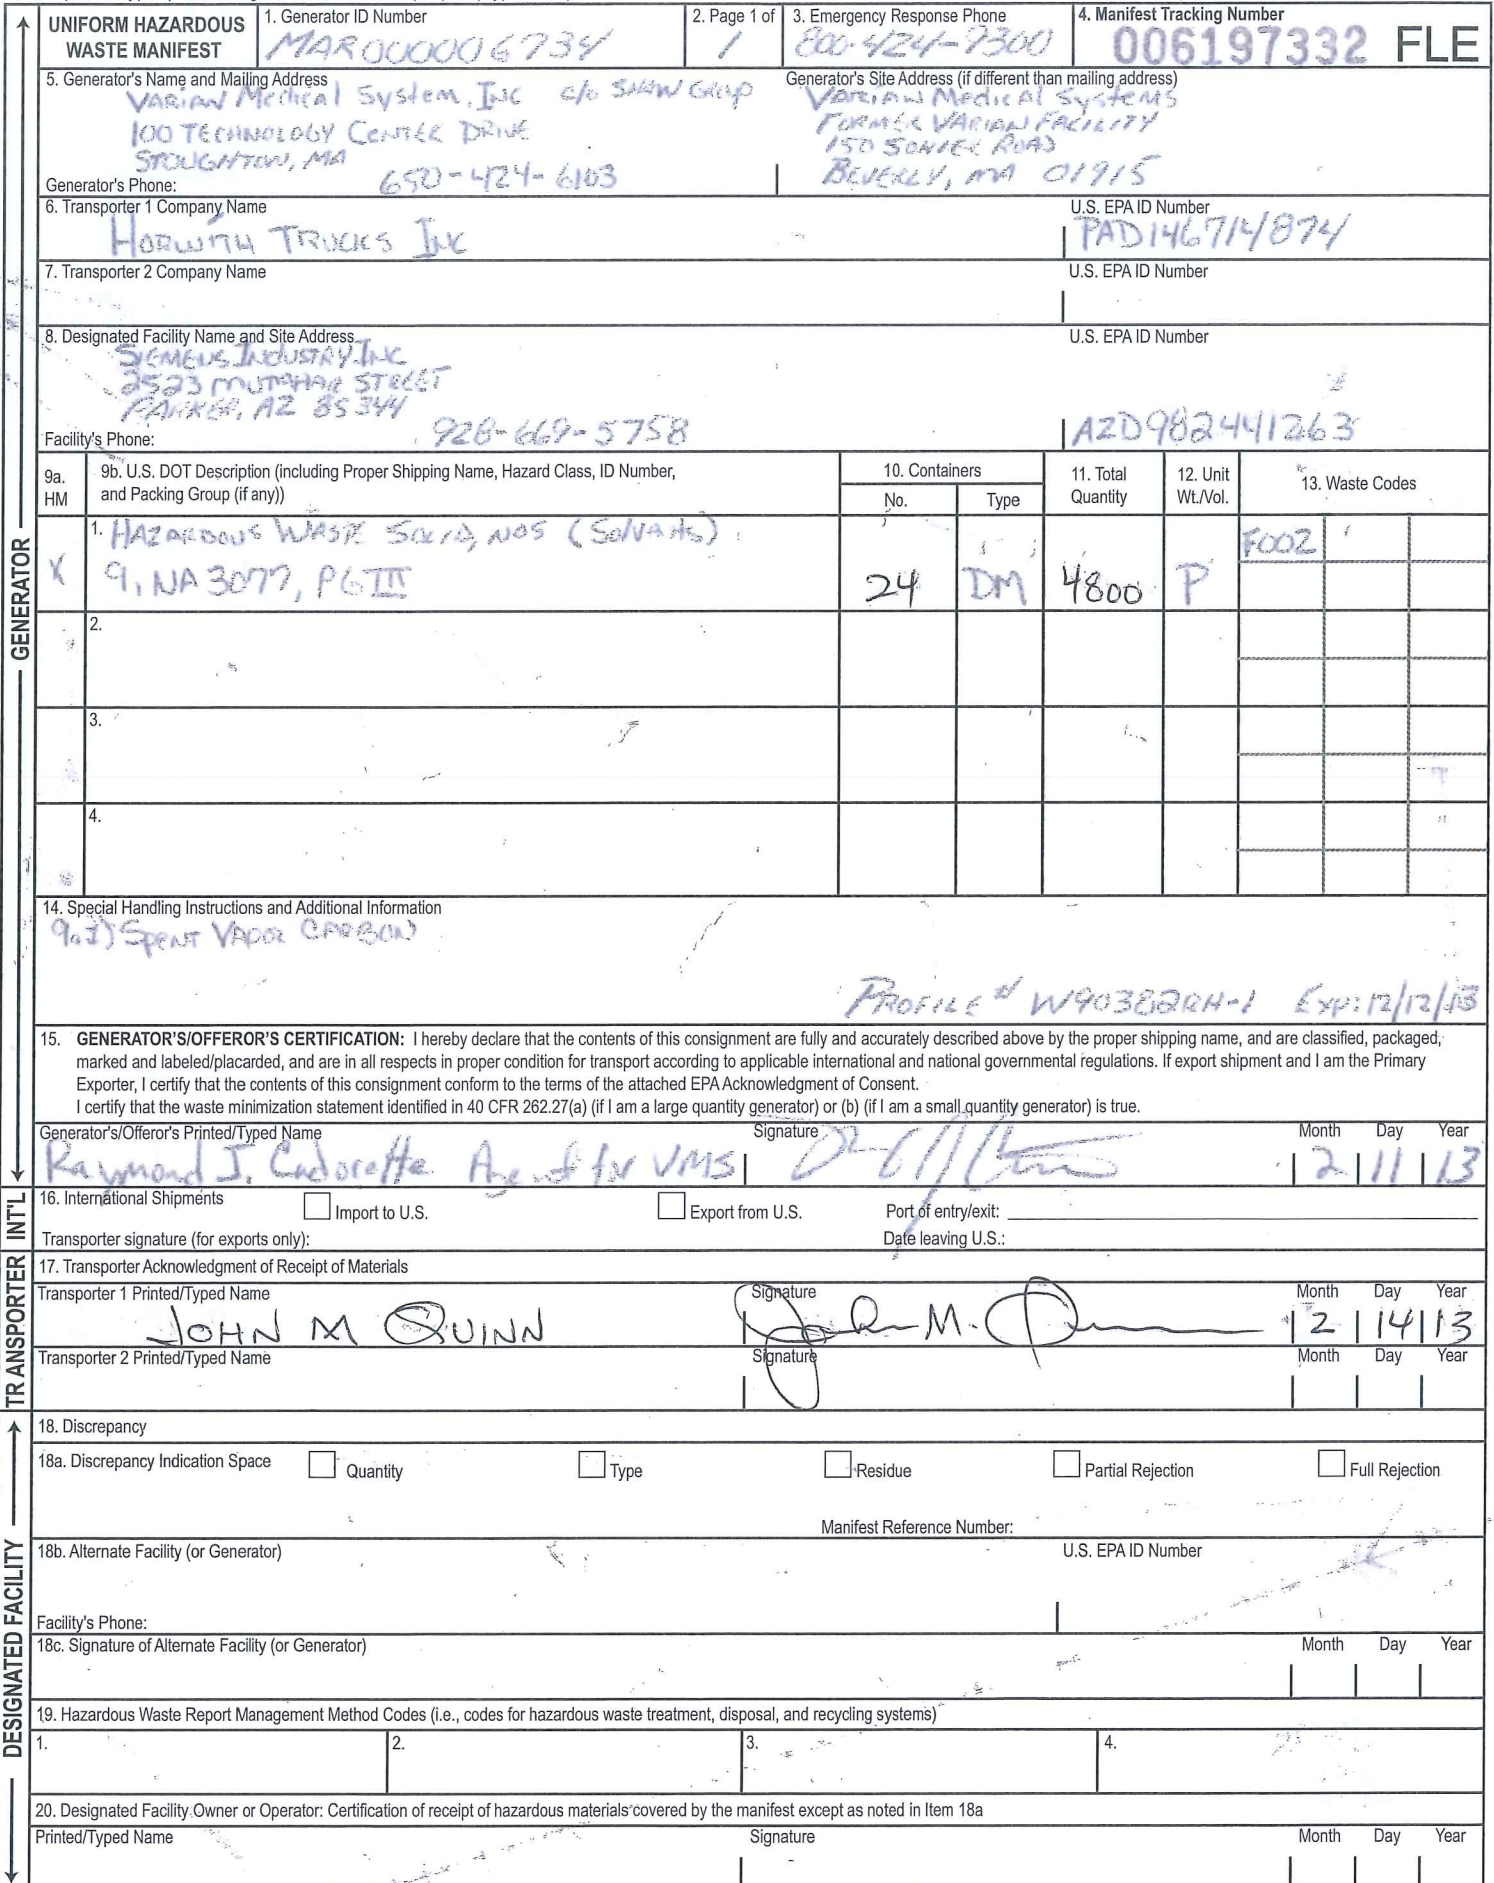 UNIFORM HAZARDOUS
WASTE MANIFEST
1. Generator ID Number
MAR000006734
2. Page 1 of
1
3. Emergency Response Phone
800-424-9300
4. Manifest Tracking Number
006197332 FLE
5. Generator's Name and Mailing Address
VARIAN Medical System, INC c/o SHAW Group
100 TECHNOLOGY CENTER DRIVE
STOUGHTON, MA
Generator's Phone: 650-424-6103
Generator's Site Address (if different than mailing address)
VARIAN Medical Systems
FORMER VARIAN FACILITY
150 SOHIER ROAD
BEVERLY, MA 01915
6. Transporter 1 Company Name
HORWITH TRUCKS INC
U.S. EPA ID Number
PAD146714874
7. Transporter 2 Company Name
U.S. EPA ID Number
8. Designated Facility Name and Site Address
SIEMENS INDUSTRY INC
2523 MUTAHAR STREET
PARKER, AZ 85344
Facility's Phone: 928-669-5758
U.S. EPA ID Number
AZD982441263
9a.
HM
9b. U.S. DOT Description (including Proper Shipping Name, Hazard Class, ID Number,
and Packing Group (if any))
10. Containers
No.
Type
11. Total
Quantity
12. Unit
Wt./Vol.
13. Waste Codes
X
1. HAZARDOUS WASTE SOLID, NOS (Solvents)
9, NA3077, PG III
24 DM 4800 P
F002
2.
3.
4.
14. Special Handling Instructions and Additional Information
9.1) SPENT VAPOR CARBON
PROFILE # W90382RH-1 EXP: 12/12/13
15. GENERATOR'S/OFFEROR'S CERTIFICATION: I hereby declare that the contents of this consignment are fully and accurately described above by the proper shipping name, and are classified, packaged,
marked and labeled/placarded, and are in all respects in proper condition for transport according to applicable international and national governmental regulations. If export shipment and I am the Primary
Exporter, I certify that the contents of this consignment conform to the terms of the attached EPA Acknowledgment of Consent.
I certify that the waste minimization statement identified in 40 CFR 262.27(a) (if I am a large quantity generator) or (b) (if I am a small quantity generator) is true.
Generator's/Offeror's Printed/Typed Name
Signature
Month Day Year
Raymond J. Cadorette Agent for VMS
2 11 13
16. International Shipments
Import to U.S.
Export from U.S.
Port of entry/exit:
Transporter signature (for exports only):
Date leaving U.S.:
17. Transporter Acknowledgment of Receipt of Materials
Transporter 1 Printed/Typed Name
Signature
Month Day Year
JOHN M QUINN
John M. Quinn
2 14 13
Transporter 2 Printed/Typed Name
Signature
Month Day Year
18. Discrepancy
18a. Discrepancy Indication Space
Quantity
Type
Residue
Partial Rejection
Full Rejection
Manifest Reference Number:
18b. Alternate Facility (or Generator)
U.S. EPA ID Number
Facility's Phone:
18c. Signature of Alternate Facility (or Generator)
Month Day Year
19. Hazardous Waste Report Management Method Codes (i.e., codes for hazardous waste treatment, disposal, and recycling systems)
1.
2.
3.
4.
20. Designated Facility Owner or Operator: Certification of receipt of hazardous materials covered by the manifest except as noted in Item 18a
Printed/Typed Name
Signature
Month Day Year
GENERATOR
INT'L
TRANSPORTER
DESIGNATED FACILITY